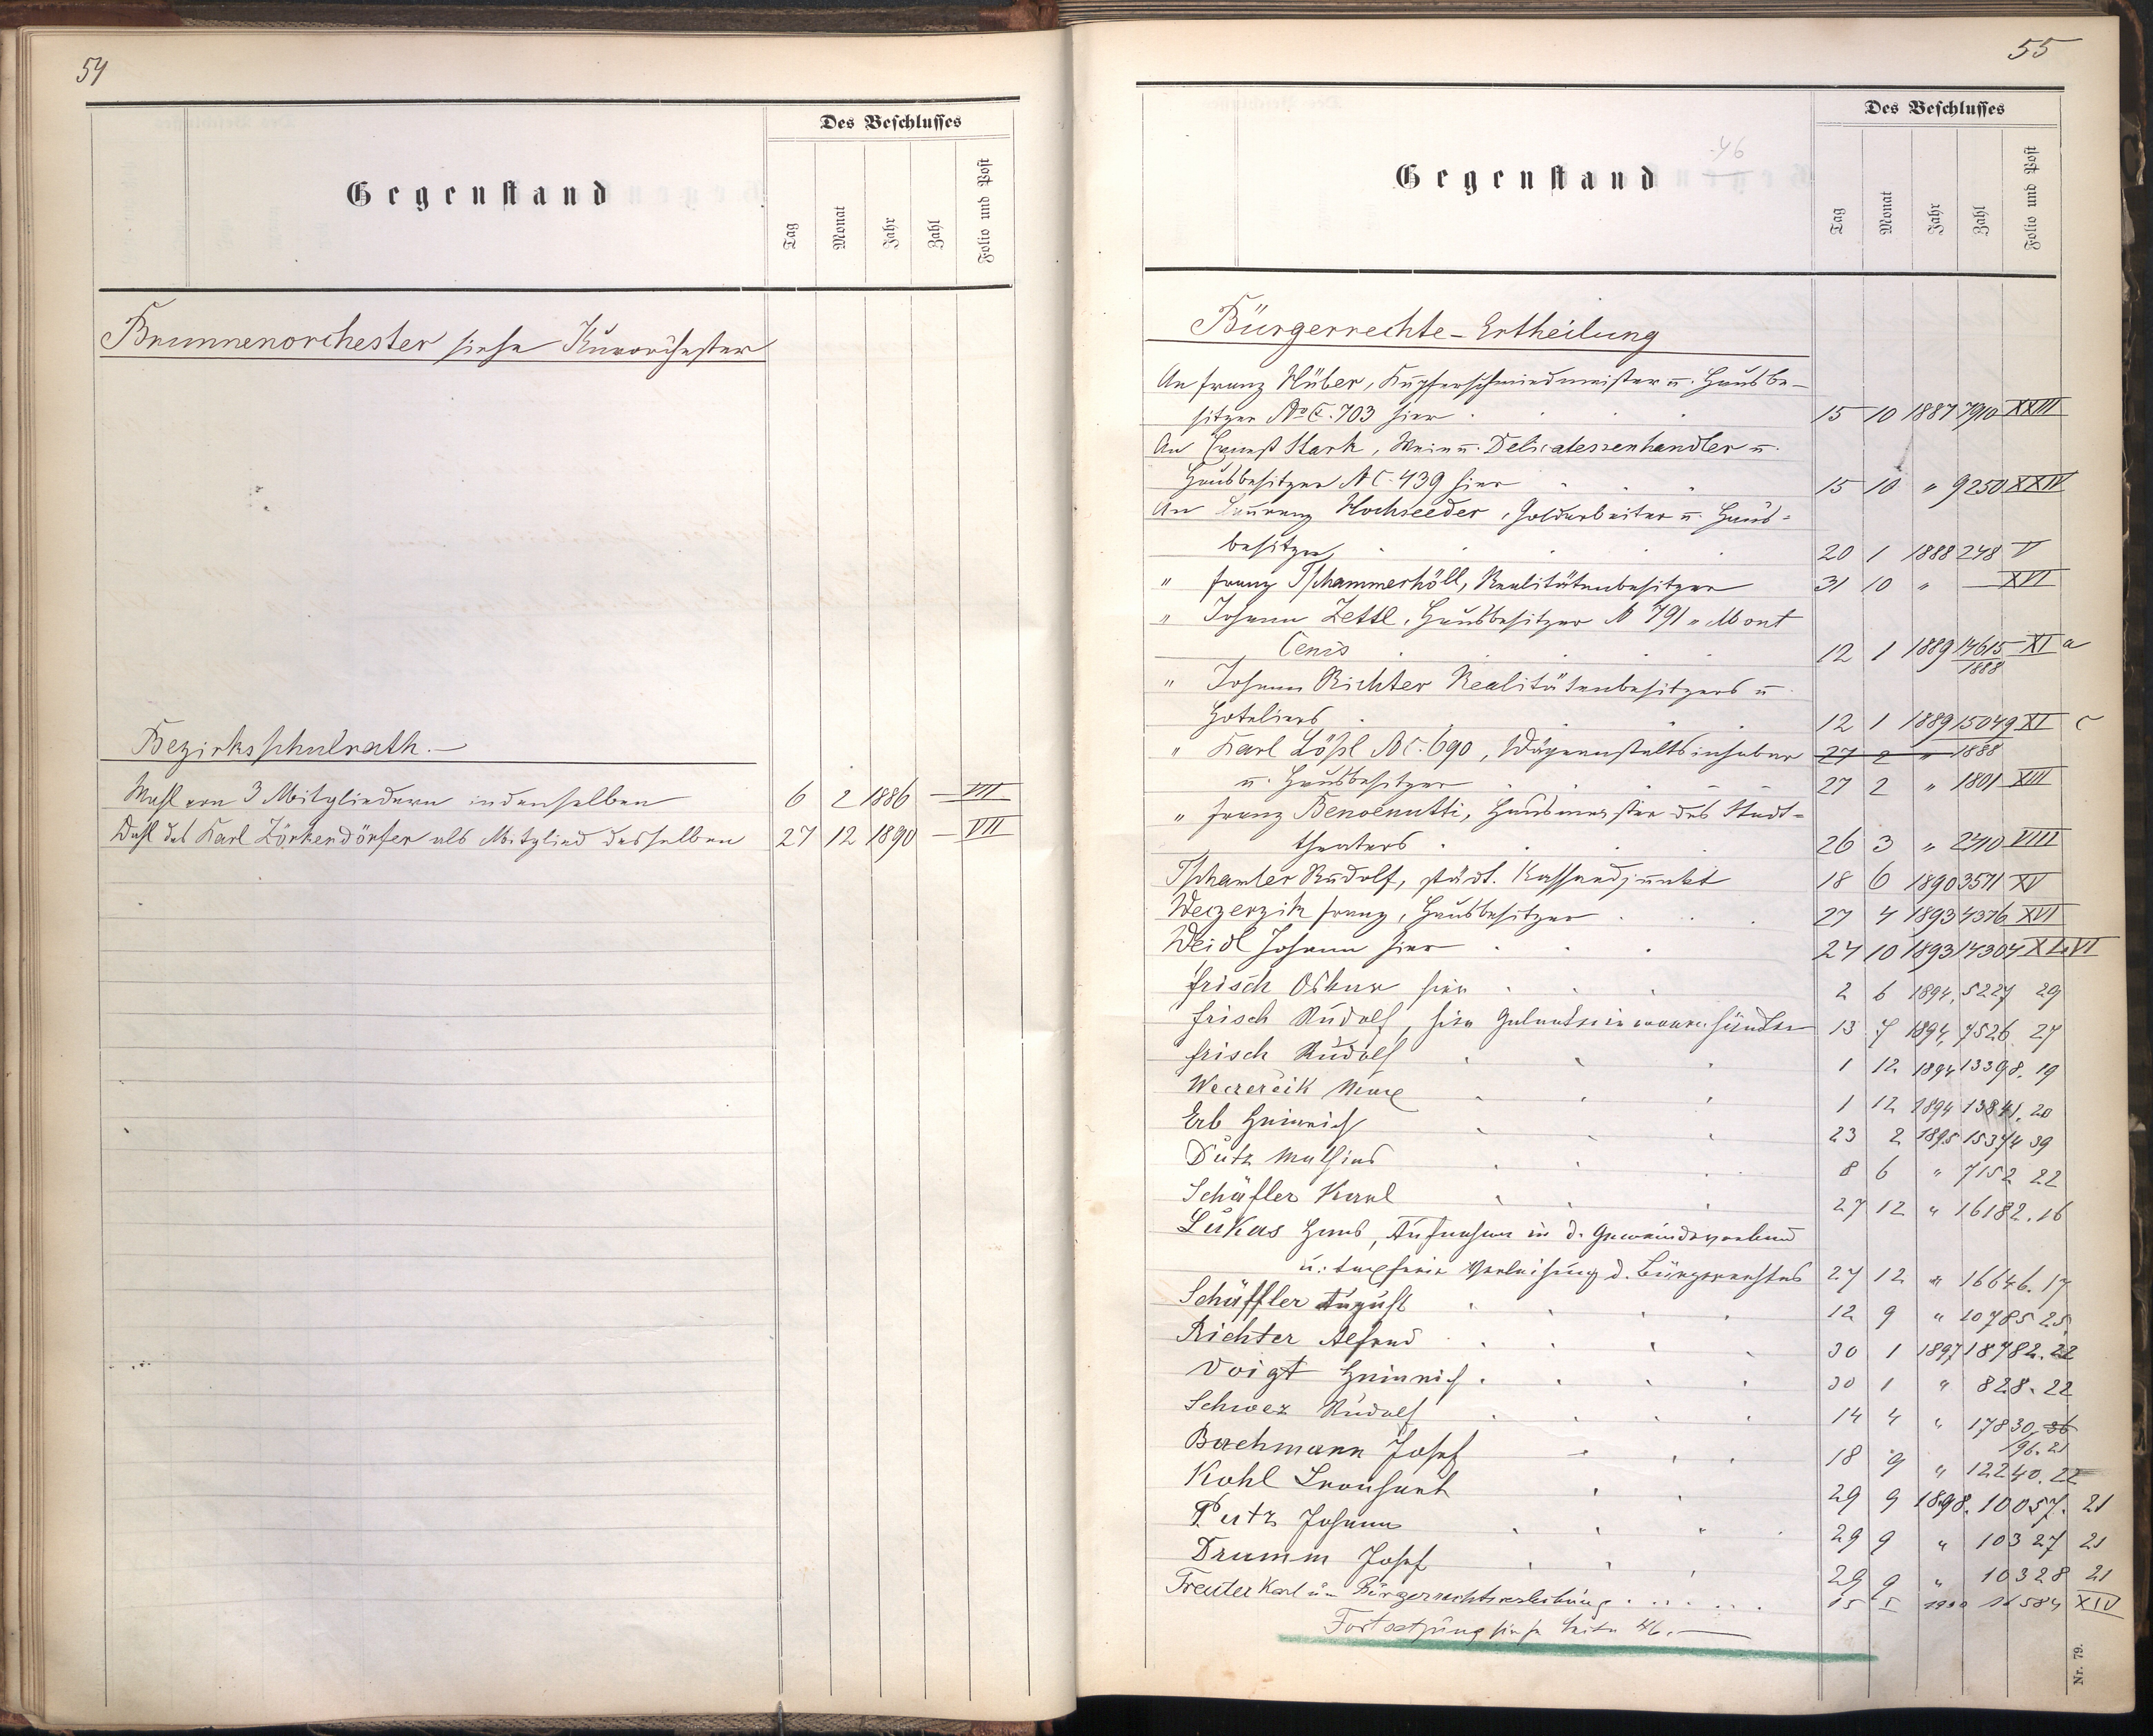 54
Des Beschlusses
Gegenstand
Tag
Monat
Jahr
Zahl
Folio und Post
Brunnenorchester siehe Kurorchester
Bezirksschulrath.—
Wahl von 3 Mitgliedern in denselben 6 2 1886 — VII
Wahl des Karl Zörkendörfer als Mitglied desselben 27 12 1890 — VII
55
46
Des Beschlusses
Gegenstand
Tag
Monat
Jahr
Zahl
Folio und Post
Bürgerrechte-Ertheilung
An Franz Hüber, Kupferschmiedmeister u. Hausbe-
sitzer No C. 703 hier 15 10 1887 7910 XXIII
An Ernest Stark, Wein u. Delicatessenhandler u.
Hausbesitzer N C. 439 hier 15 10 " 9250 XXIV
An Laurenz Hochseeder, Goldarbeiter u. Haus-
besitzer 20 1 1888 248 V
" Franz Tschammerhöll, Realitätenbesitzer 31 10 " — XVI
" Johann Zettl, Hausbesitzer N 791 " Mont
Cenis 12 1 1889 14615 XI a
1888
" Johann Richter Realitätenbesitzers u
Hoteliers 12 1 1889 15049 XI c
1888
" Karl Lößl N C. 690, Wägeanstaltsinhaber 27 2 "
u. Hausbesitzer 27 2 " 1801 XIII
" Franz Benvenutti, Hausmeister des Stadt-
theaters 26 3 " 2410 VIII
Tschanter Rudolf, städt. Kassaadjunkt 18 6 1890 3571 XV
Weczerzik Franz, Hausbesitzer 27 4 1893 4376 XVI
Weidl Johann hier 24 10 1893 14304 XLVI
Frisch Oskar hier 2 6 1894 5227 29
Frisch Rudolf, hier Galanteriewarenhändler 13 7 1894 7526 27
Frisch Rudolf 1 12 1894 13398. 19
Weczerzik Max 1 12 1894 13841. 20
Erb Heinrich 23 2 1895 15374 39
Dutz Mathias 8 6 " 7152 22
Schäfler Karl 27 12 " 16182. 16
Lukas Hans, Aufnahme in d. Gemeindeverband
u: taxfreie Verleihung d. Bürgerrechtes 27 12 " 16646. 17
Schäffler August 12 9 " 10785 25
Richter Alfred 30 1 1897 18782. 22
Voigt Heinrich 30 1 " 828. 22
Schwez Rudolf 14 4 " 17830 36
96. 21
Bachmann Josef 18 9 " 12240. 22
Kohl Leonhard 29 9 1898. 10057. 21
Putz Johann 29 9 " 10327 21
Drumm Josef 29 9 " 10328 21
Treuter Karl um Bürgerrechtsverleihung 15 I 1900 16584 XIV
Fortsetzung siehe Seite 46.—
Nr. 79.